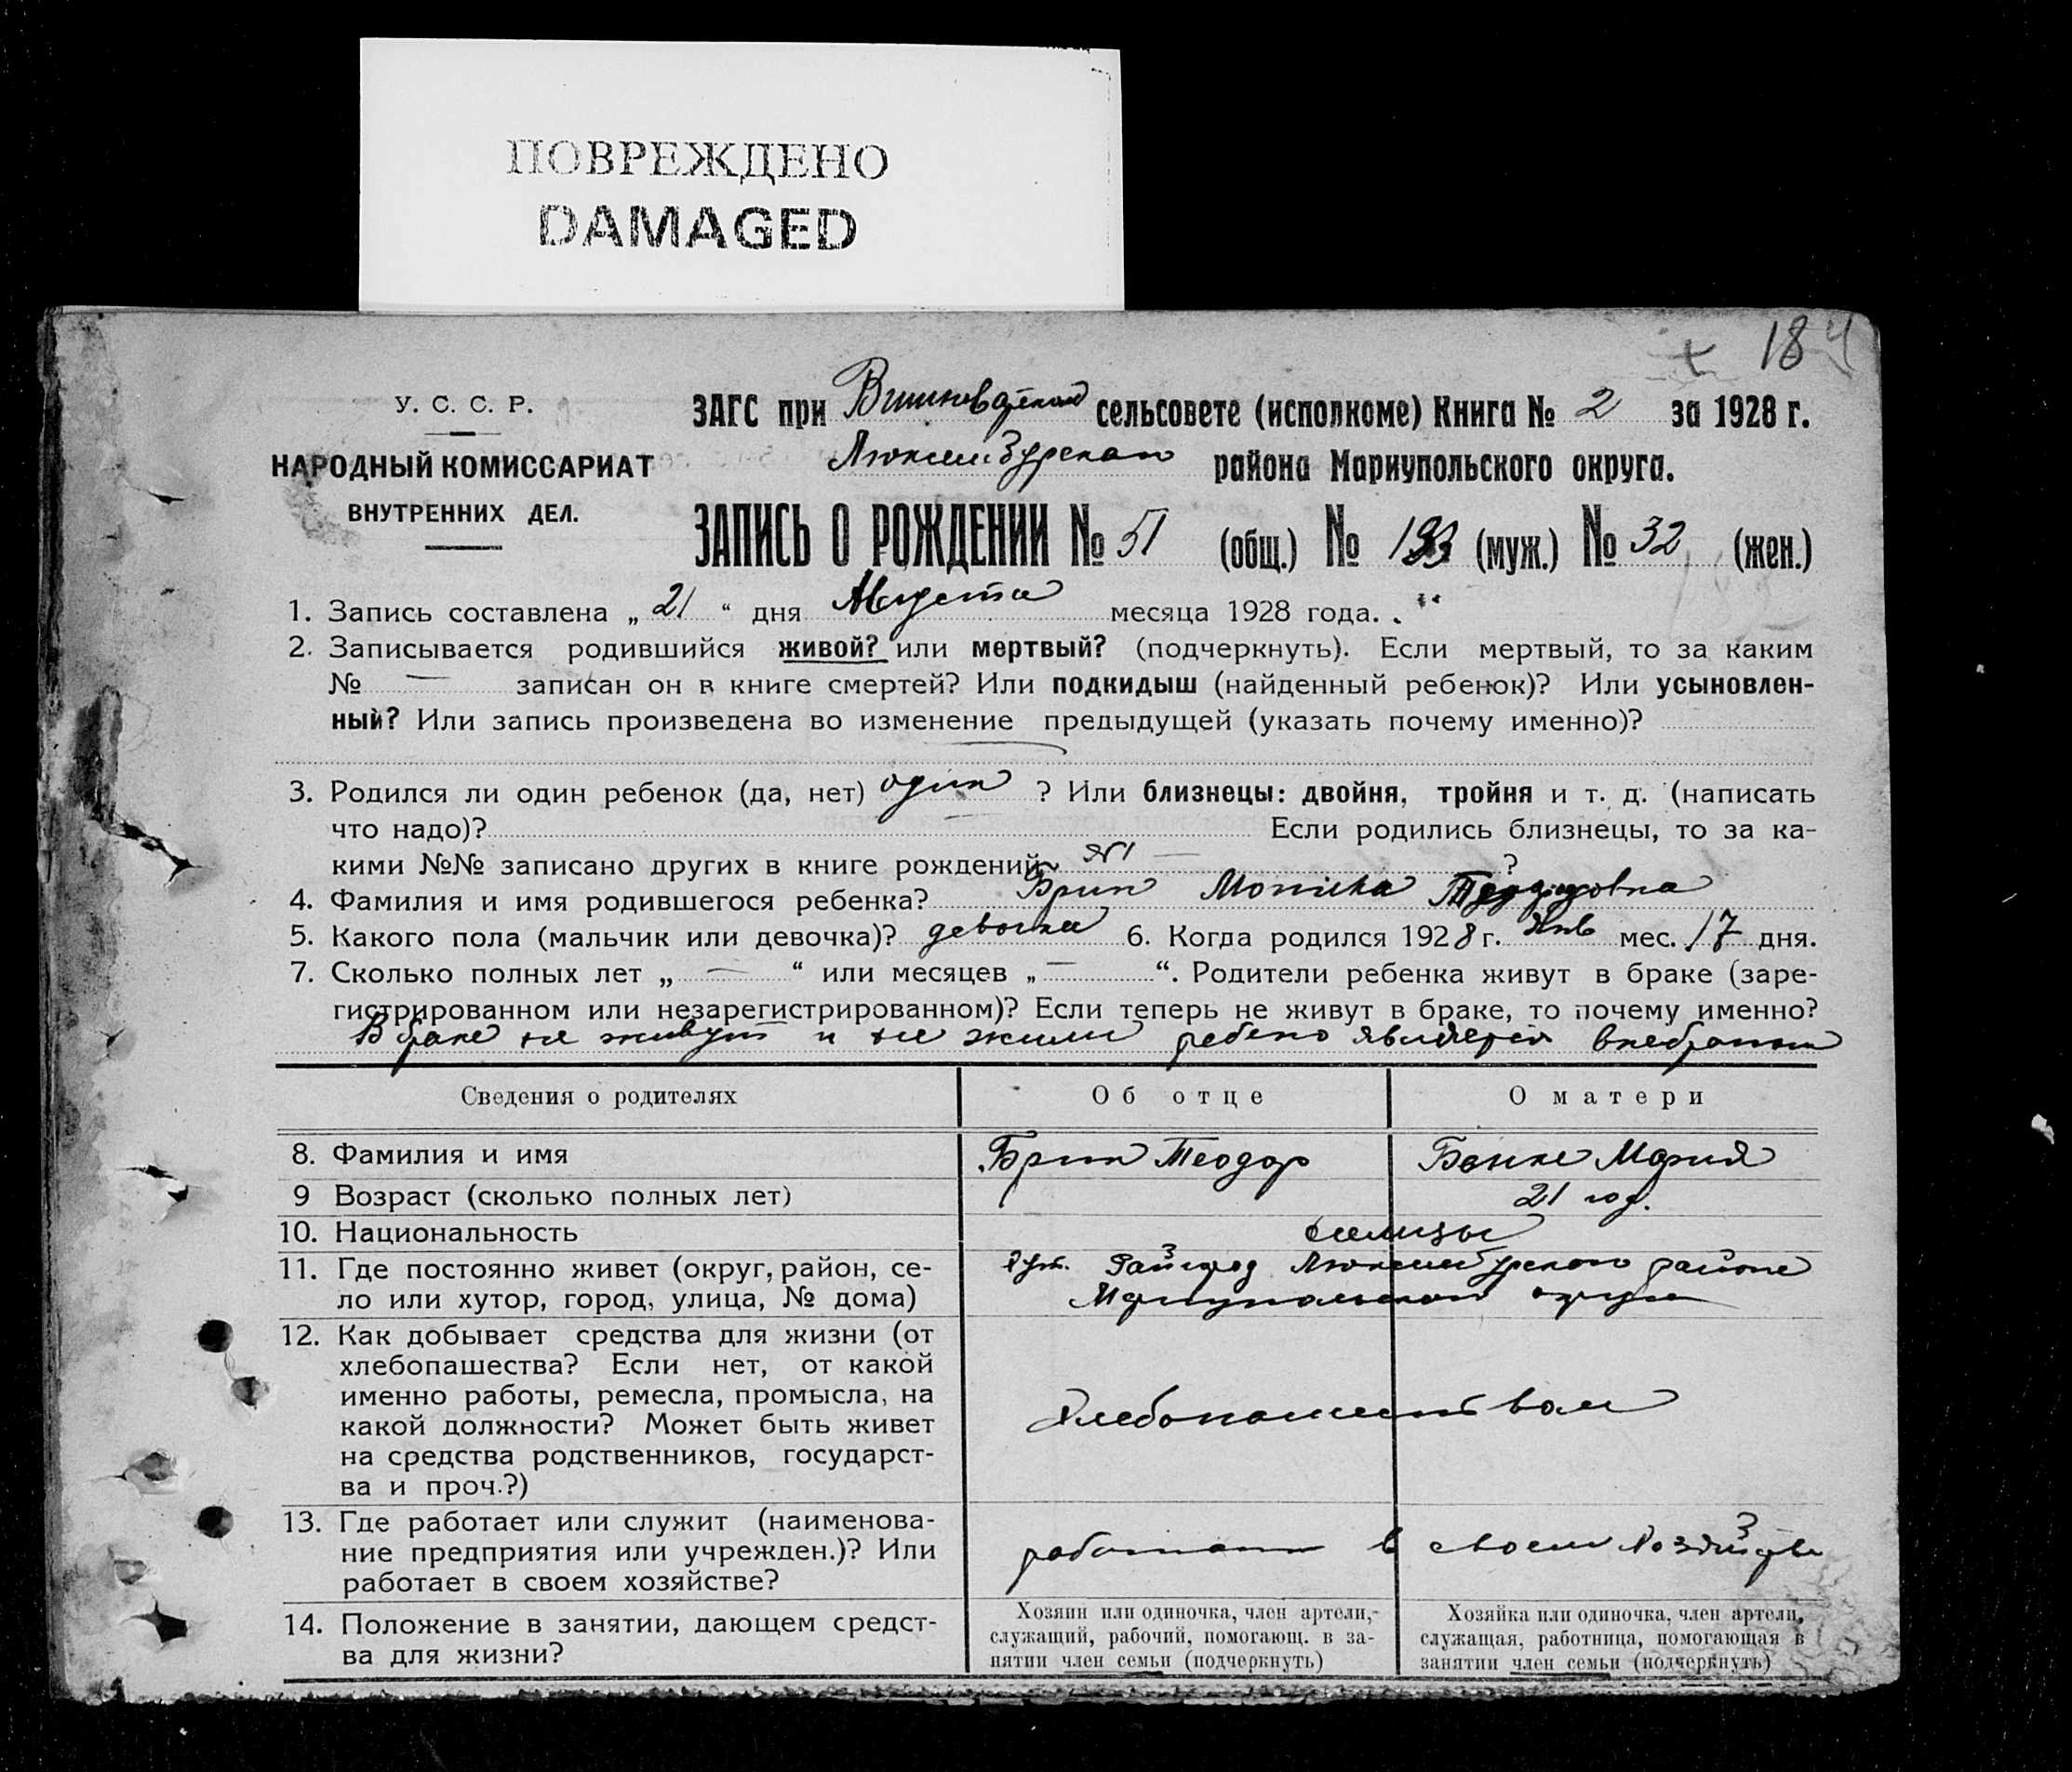 ПОВРЕЖДЕНО
DAMAGED
184
У. С. С. Р.
НАРОДНЫЙ КОМИССАРИАТ
ВНУТРЕННИХ ДЕЛ.
ЗАГС при сельсовете (исполкоме) Книга № 2 за 1928 г.
района Мариупольского округа.
ЗАПИСЬ О РОЖДЕНИИ № 51 (общ.) № (муж.) № 32 (жен.)
1. Запись составлена „ 21 “ дня Августа месяца 1928 года.
2. Записывается родившийся живой? или мертвый? (подчеркнуть). Если мертвый, то за каким
№ — записан он в книге смертей? Или подкидыш (найденный ребенок)? Или усыновлен-
ный? Или запись произведена во изменение предыдущей (указать почему именно)?
3. Родился ли один ребенок (да, нет) один ? Или близнецы: двойня, тройня и т. д. (написать
что надо)? Если родились близнецы, то за ка-
кими №№ записано других в книге рождений — ?
4. Фамилия и имя родившегося ребенка? Брин Моника
5. Какого пола (мальчик или девочка)? девочка 6. Когда родился 1928 г. Янв мес. 17 дня.
7. Сколько полных лет „ — “ или месяцев „ — “. Родители ребенка живут в браке (заре-
гистрированном или незарегистрированном)? Если теперь не живут в браке, то почему именно?
В браке не живут и не жили ребено является внебрачным
Сведения о родителях Об отце О матери
8. Фамилия и имя Брин Теодор Мария
9 Возраст (сколько полных лет) 21 год.
10. Национальность
11. Где постоянно живет (округ, район, се- хут. Райгород Люксембургского района
ло или хутор, город, улица, № дома) Мариупольского округа
12. Как добывает средства для жизни (от
хлебопашества? Если нет, от какой
именно работы, ремесла, промысла, на
какой должности? Может быть живет
на средства родственников, государст-
ва и проч.?)
Хлебопашеством
13. Где работает или служит (наименова-
ние предприятия или учрежден.)? Или
работает в своем хозяйстве?
работают в своем хозяйстве
14. Положение в занятии, дающем средст-
ва для жизни?
Хозяин или одиночка, член артели,
служащий, рабочий, помогающ. в за-
нятии член семьи (подчеркнуть)
Хозяйка или одиночка, член артели,
служащая, работница, помогающая в
занятии член семьи (подчеркнуть)